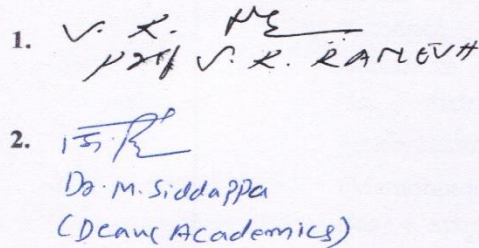 1. V. R.
Prof V. R. RAMESH
2.
Dr. M. Siddappa
(Dean Academics)